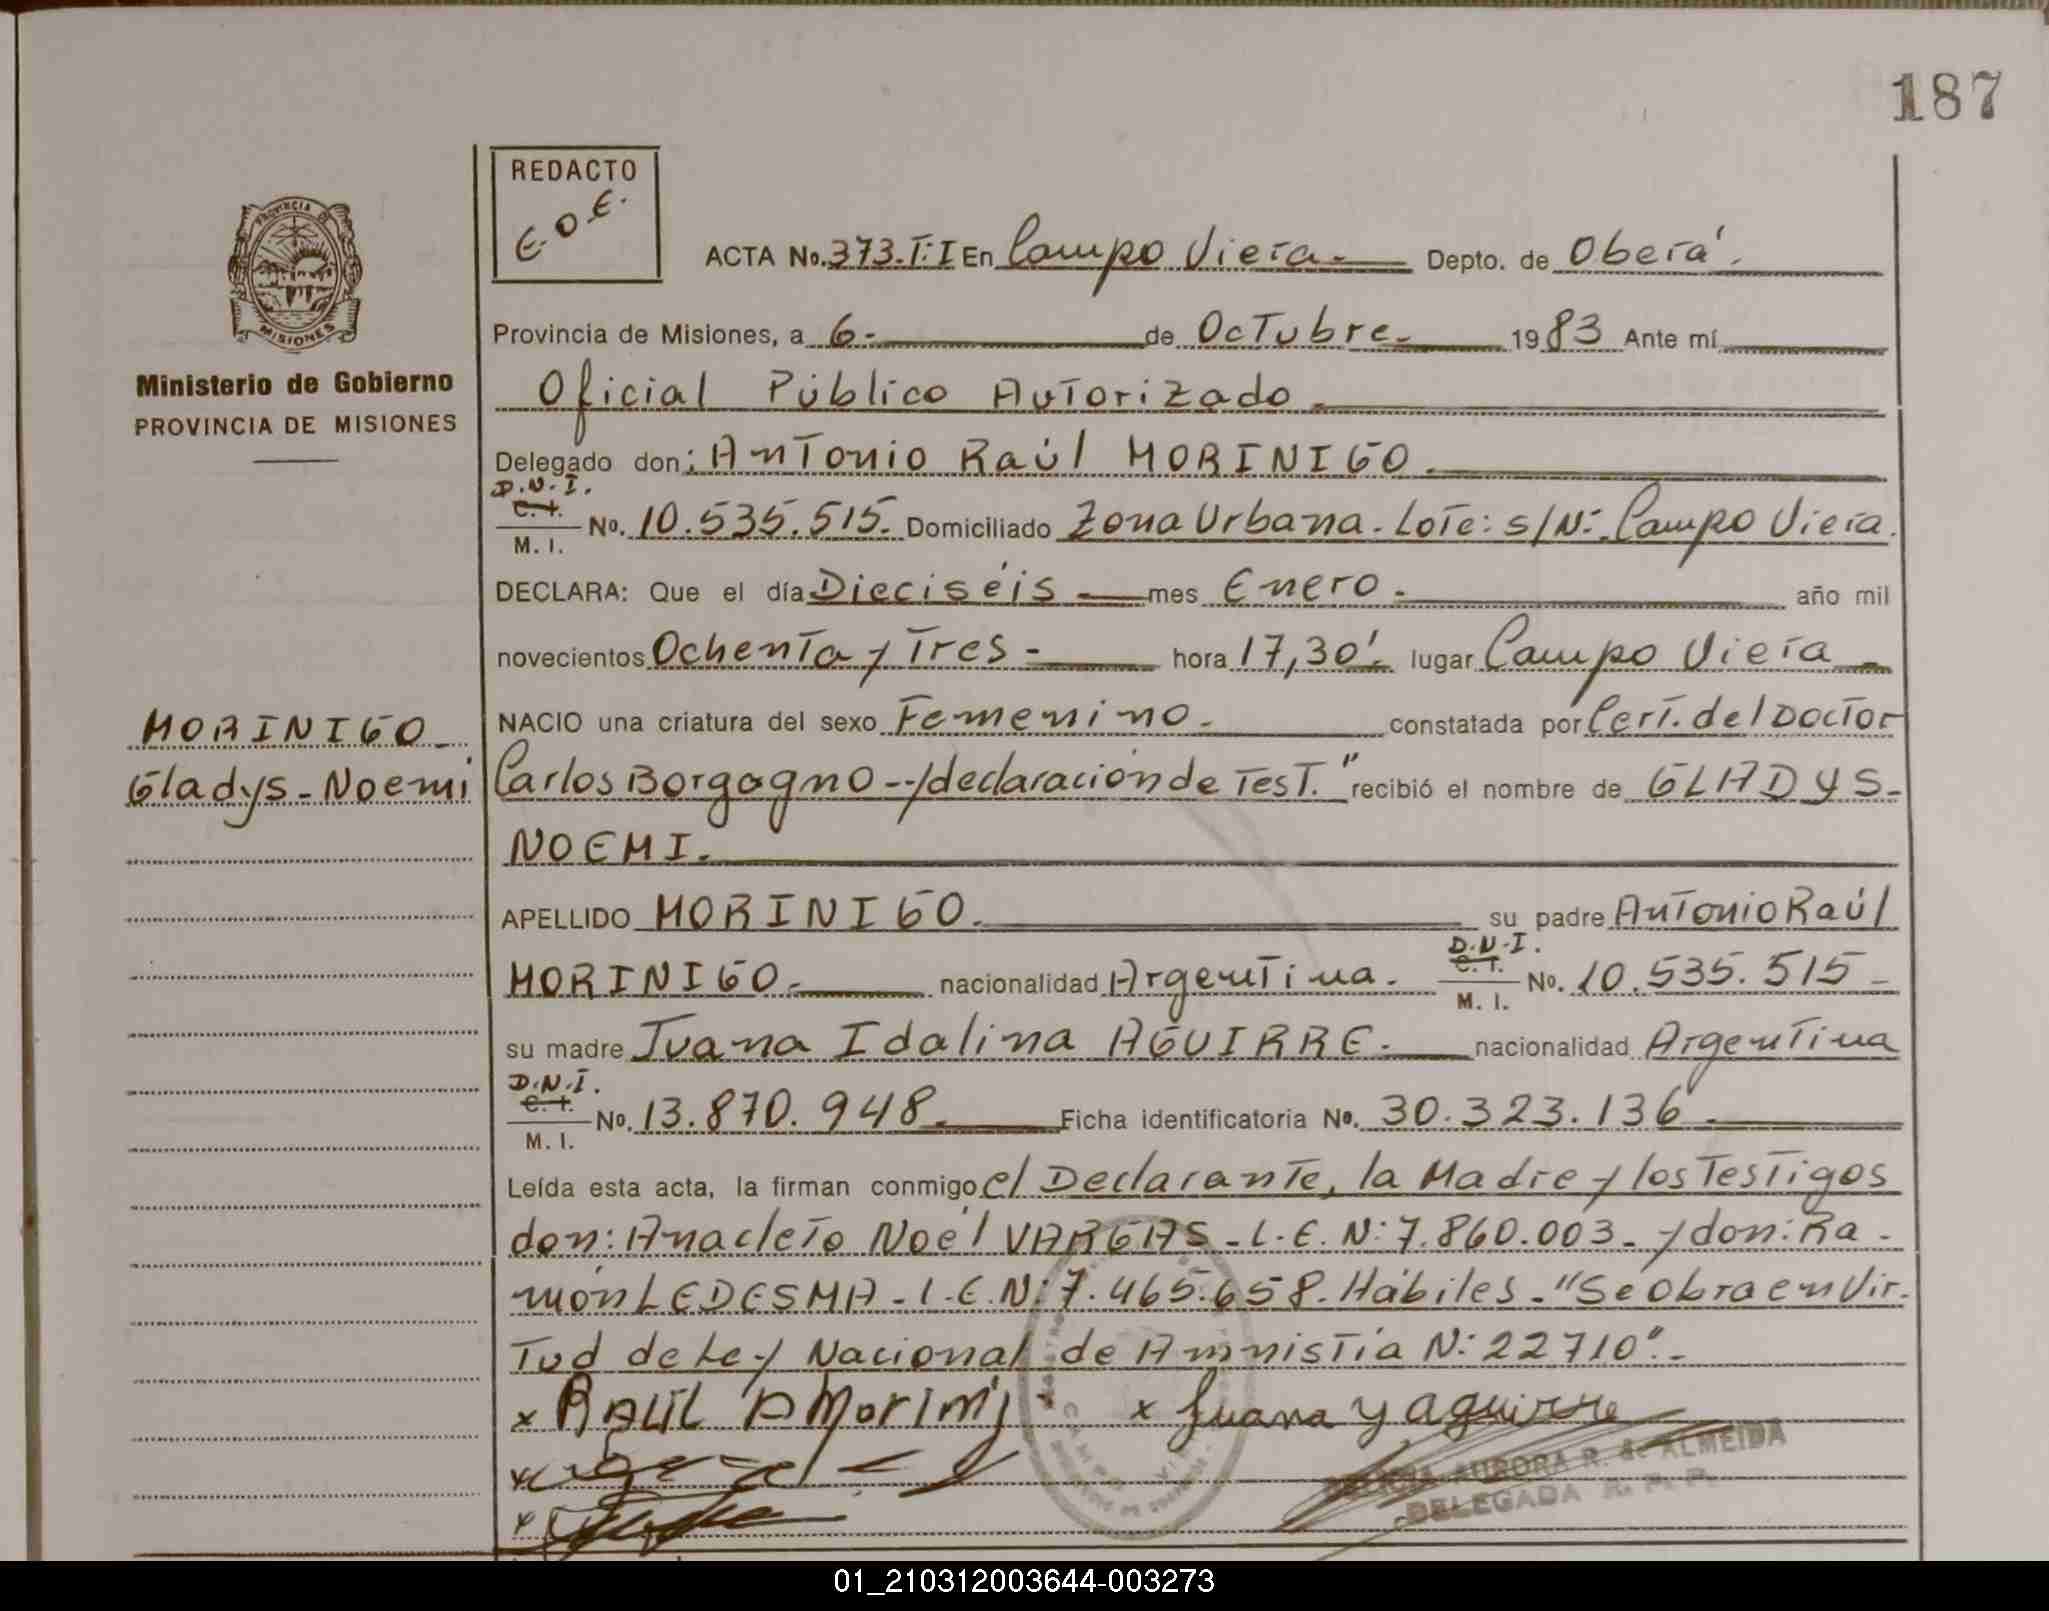 187
REDACTO
E.O.E.
PROVINCIA DE
MISIONES
ACTA No. 373.T:I En Campo Viera.- Depto. de Oberá.
Provincia de Misiones, a 6.- de Octubre.- 1983 Ante mí
Ministerio de Gobierno
PROVINCIA DE MISIONES
Oficial Público Autorizado.-
Delegado don: Antonio Raúl MORINIGO.-
D.N.I.
C. I.
M. I.
No. 10.535.515.- Domiciliado Zona Urbana.- Lote: s/N:. Campo Viera.
DECLARA: Que el día Dieciséis.- mes Enero.- año mil
novecientos Ochenta y Tres.- hora 17,30'.- lugar Campo Viera.-
MORINIGO.-
Gladys-Noemi
NACIO una criatura del sexo Femenino.- constatada por Cert. del Doctor
Carlos Borgogno--y declaración de Test." recibió el nombre de GLADYS-
NOEMI.-
APELLIDO MORINIGO.- su padre Antonio Raúl
D.N.I.
C. I.
M. I.
MORINIGO.- nacionalidad Argentina.- No. 10.535.515.-
su madre Juana Idalina AGUIRRE.- nacionalidad Argentina
D.N.I.
C. I.
M. I.
No. 13.870.948.- Ficha identificatoria No. 30.323.136.-
Leída esta acta, la firman conmigo el Declarante, la Madre y los Testigos
don: Anacleto Noel VARGAS.-L.E.N:7.860.003.-y don: Ra-
món LEDESMA.-L.E.N:7.465.658.Hábiles.-"Se obra en Vir-
tud de Ley Nacional de Amnistía N:22710".-
x RAUL A Morini x Juana y aguirre
x
x
DELICIA AURORA R. de ALMEIDA
DELEGADA R. P. P.
01_210312003644-003273